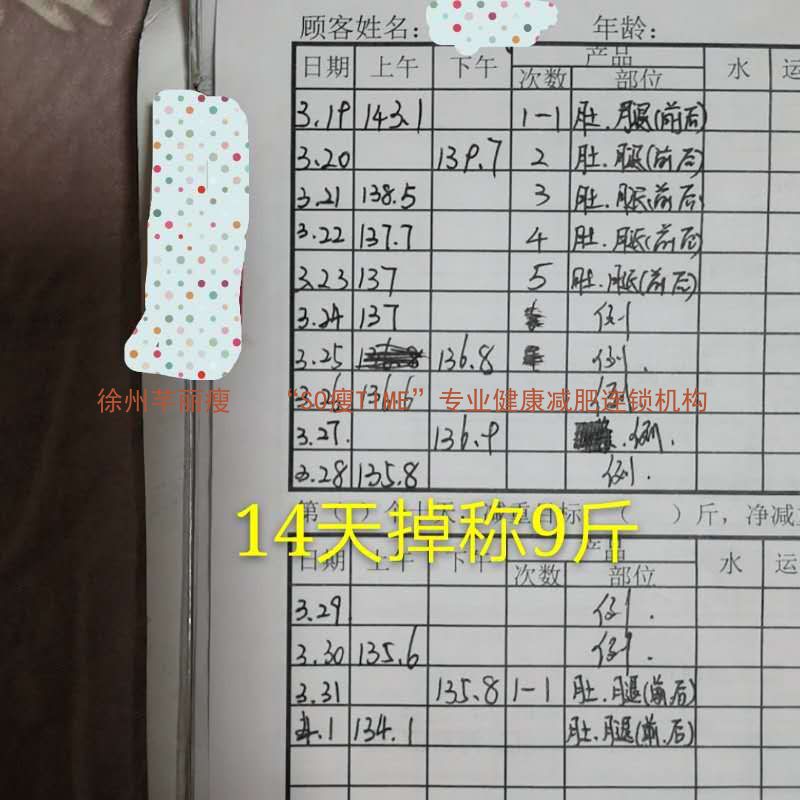 顾客姓名： 年龄：
日期 上午 下午 产品 水 运
次数 部位
3.19 143.1 1-1 肚.腿(前后)
3.20 139.7 2 肚.腿(前后)
3.21 138.5 3 肚.腿(前后)
3.22 137.7 4 肚.腿(前后)
3.23 137 5 肚.腿(前后)
3.24 137 例
3.25 136.8 例.
3.26 136.6 例
徐州芊丽瘦 “SO瘦TIME”专业健康减肥连锁机构
3.27. 136.9 .例.
3.28 135.8 例.
第 ( )斤，净减
14天掉称9斤
日期 上午 下午 产品 水 运
次数 部位
3.29 例.
3.30 135.6 例.
3.31 135.8 1-1 肚.腿(前后)
4.1 134.1 肚.腿(前.后)